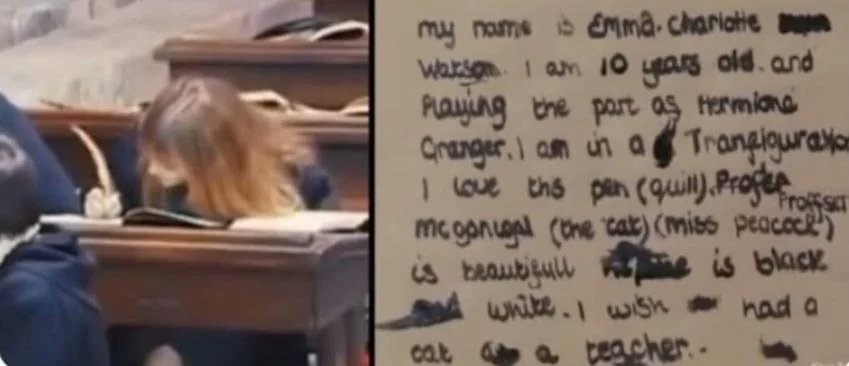 my name is Emma. Charlotte
Watson. I am 10 years old. and
Playing the part as Hermione
Granger. I am in a Tranfiguration
I love this pen (quill). Profer
Proffser
mcgonigal (the cat) (miss peacock)
is beautifull is black
and white. I wish had a
cat a teacher.-